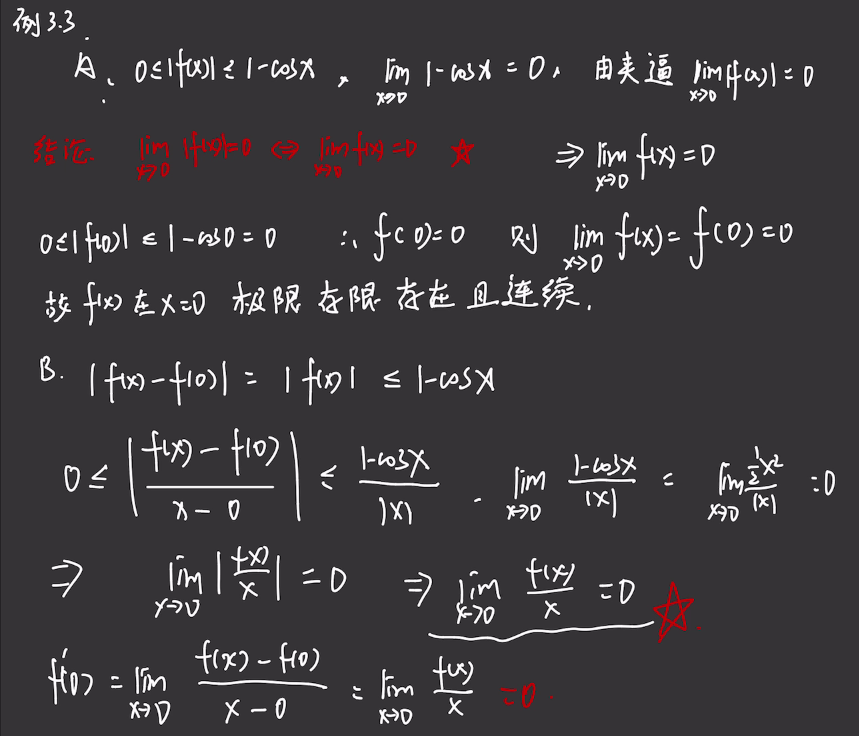 例3.3.
A、 0≤|f(x)|≤1-cosx , lim_{x→0} 1-cosx = 0, 由夹逼 lim_{x→0}|f(x)|=0
结论: lim_{x→0} |f(x)|=0 ⇔ lim_{x→0} f(x)=0 ☆ ⇒ lim_{x→0} f(x)=0
0≤|f(0)| ≤ 1-cos0 = 0 ∴ f(0)=0 则 lim_{x→0} f(x)= f(0)=0
故 f(x) 在 x=0 极限存限存在且连续.
B. |f(x)-f(0)| = |f(x)| ≤ 1-cosx
0 ≤ |(f(x)-f(0))/(x-0)| ≤ (1-cosx)/|x| . lim_{x→0} (1-cosx)/|x| = lim_{x→0} (½x²)/|x| =0
⇒ lim_{x→0} |f(x)/x| = 0 ⇒ lim_{x→0} f(x)/x =0 ☆
f'(0) = lim_{x→0} (f(x)-f(0))/(x-0) = lim_{x→0} f(x)/x =0.